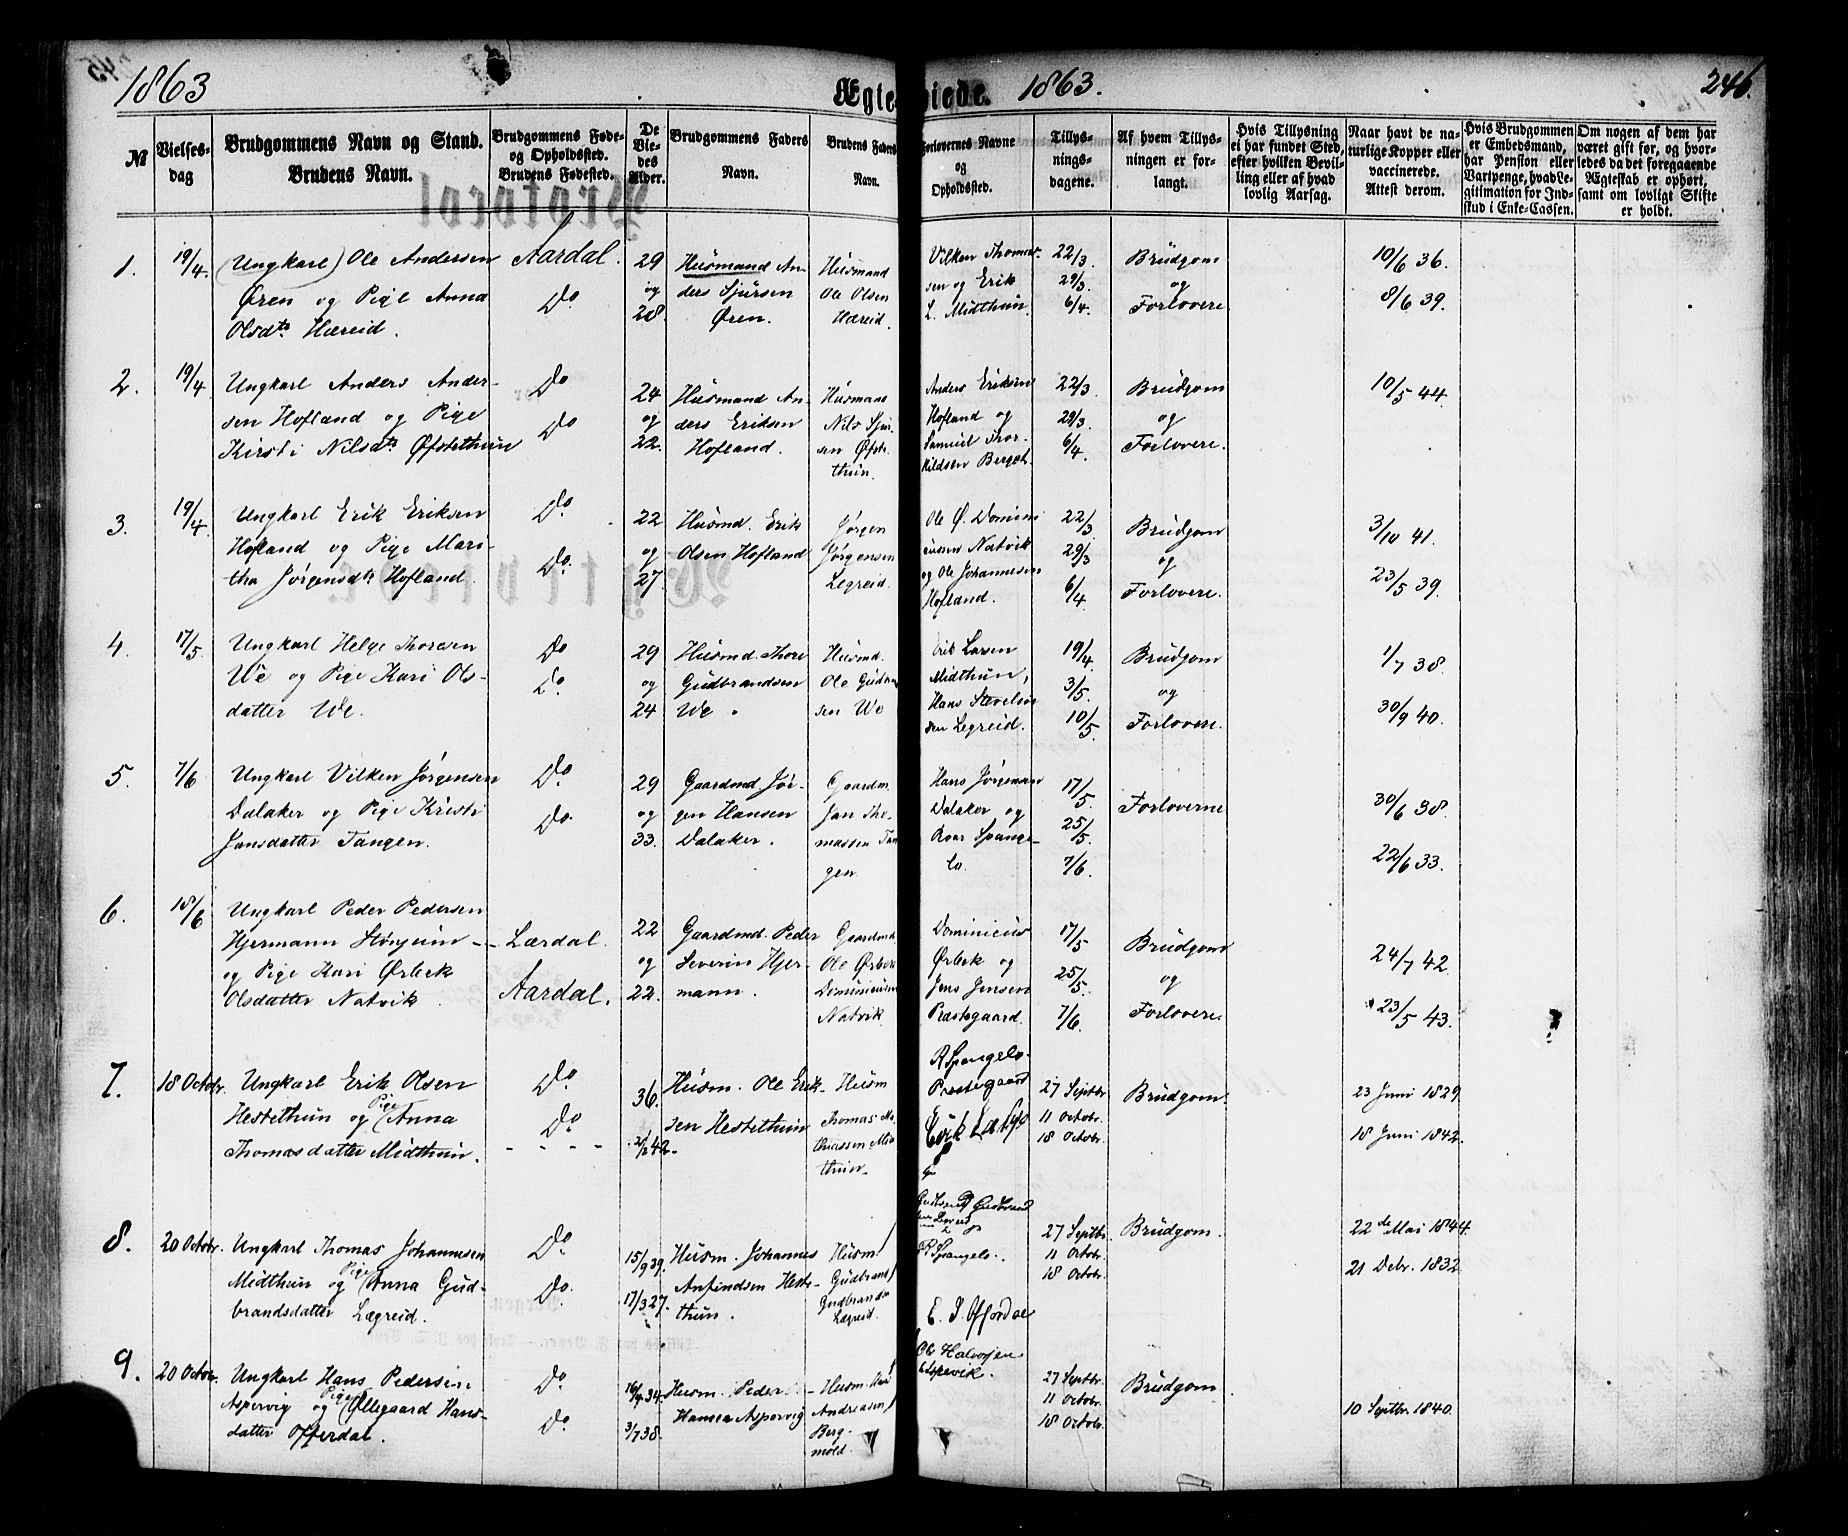 1863
Ægteviede.
1863.
246.
№
Vielses-
dag
Brudgommens Navn og Stand.
Brudens Navn.
Brudgommens Føde-
og Opholdssted.
Brudens Fødested.
De
Vie-
des
Alder.
Brudgommens Faders
Navn.
Brudens Faders
Navn.
Forlovernes Navne
og
Opholdssted.
Tillys-
nings-
dagene.
Af hvem Tillys-
ningen er for-
langt.
Hvis Tillysning
ei har fundet Sted,
efter hvilken Bevil-
ling eller af hvad
lovlig Aarsag.
Naar havt de na-
turlige Kopper eller
vaccinerede.
Attest derom.
Hvis Brudgommen
er Embedsmand,
har Pension eller
Vartpenge, hvad Le-
gitimation for Ind-
skud i Enke-Cassen.
Om nogen af dem har
været gift før, og hvor-
ledes da det foregaaende
Ægteskab er ophørt,
samt om lovligt Skifte
er holdt.
1.
19/4.
(Ungkarl) Ole Andersen
Øren og Pige Anna
Olsdtr Hæreid.
Aardal.
Do
29
og
28.
Husmand An-
ders Sjursen
Øren.
Husmand
Ole Olsen
Hæreid.
Vilken Thomas-
sen og Erik
L. Midthun.
22/3.
29/3
6/4.
Brudgom
og
Forlovere.
10/6 36.
8/6 39.
2.
19/4
Ungkarl Anders Ander-
sen Hofland og Pige
Kirsti Nilsdtr Øfstethun
Do
Do
24
og
22.
Husmand An-
ders Eriksen
Hofland.
Husmand
Nils Sjur-
sen Øfste-
thun.
Anders Eriksen
Hofland og
Samuel Thor-
kildsen Berget.
22/3.
29/3.
6/4.
Brudgom
og
Forlovere.
10/5 44.
3.
19/4
Ungkarl Erik Eriksen
Hofland og Pige Mari-
tha Jørgensdtr Hofland.
Do.
Do.
22
og
27.
Husmd. Erik
Olsen Hofland
Jørgen
Jørgensen
Legreid.
Ole Ø. Domini-
cussen Natvik
og Ole Johannesen
Hofland.
22/3
29/3
6/4.
Brudgom
og
Forlovere.
3/10 41.
23/5 39.
4.
17/5.
Ungkarl Helge Thoresen
We og Pige Kari Ols-
datter We.
Do
Do.
29
og
24
Husmd. Thore
Gudbrandsen
We.
Husmd.
Ole Gudbrand-
sen We
Erik Larsen
Midthun,
Hans Stevelin-
sen Legreid.
19/4.
3/5.
10/5.
Brudgom
og
Forlovere.
1/7 38.
30/9 40.
5.
7/6
Ungkarl Vilken Jørgensen
Dalaker og Pige Kristi
Jansdatter Tangen.
Do.
Do.
29
og
33.
Gaardmd. Jør-
gen Hansen
Dalaker.
Gaardm.
Jan Tho-
massen Tan-
gen.
Hans Jørgensen
Dalaker og
Roar Spange-
lo.
17/5.
25/5.
7/6.
Forloverne
30/6 38.
22/6 33.
6.
18/6
Ungkarl Peder Pedersen
Hjermann Storjum
og Pige Kari Ørbek
Olsdatter Natvik.
Lærdal.
Aardal.
22
og
22.
Gaardmd. Peder
Severin Hjer-
mann.
Gaardmd.
Ole Ørbek
Dominicusen
Natvik.
Dominicus
Ørbek og
Jens Jensen
Præstegaard.
17/5
25/5.
7/6.
Brudgom
og
Forlovere
24/7 42.
23/5 43.
7.
18 Octobr.
Ungkarl Erik Olsen
Hestethun og Pige Anna
Thomasdatter Midthun.
Do.
Do
36.
2/2 42.
Husm. Ole Erik-
sen Hestethun
Husm
Thomas Ma-
thiassen Mid-
thun
R Spangelo.
Præstegaard
27 Septbr.
11 Octobr.
18 Octobr.
Brudgom.
23 Juni 1829.
18 Juni 1842.
8.
20 Octobr.
Ungkarl Thomas Johannesen
Midthun og Pige Anna Gud-
brandsdatter Lægreid.
Do.
Do.
15/9 39.
17/3 27.
Husm. Johannes
Anfindsen Heste-
thun.
Husm.
Gudbrand
Gudbrands.
Lægreid.
R. Spangelo.
E. I. Offerdal
27 Septbr.
11 Octobr.
18 Octobr.
Brudgom.
22de Mai 1844.
21 Debr. 1832
9.
20 Octobr.
Ungkarl Hans Pedersen
Aspevig og Pige Øllegaard Hans-
datter Offerdal.
Do.
Do.
16/4 34.
3/7 38.
Husm. Peder
Hansen Aspevig
Husm. Hans
Andreasen
Berg-
mold.
Ole Halvorsen
Aspevik.
27 Septbr.
11 Octobr.
18 Octobr.
Brudgom.
10 Septbr. 1840.